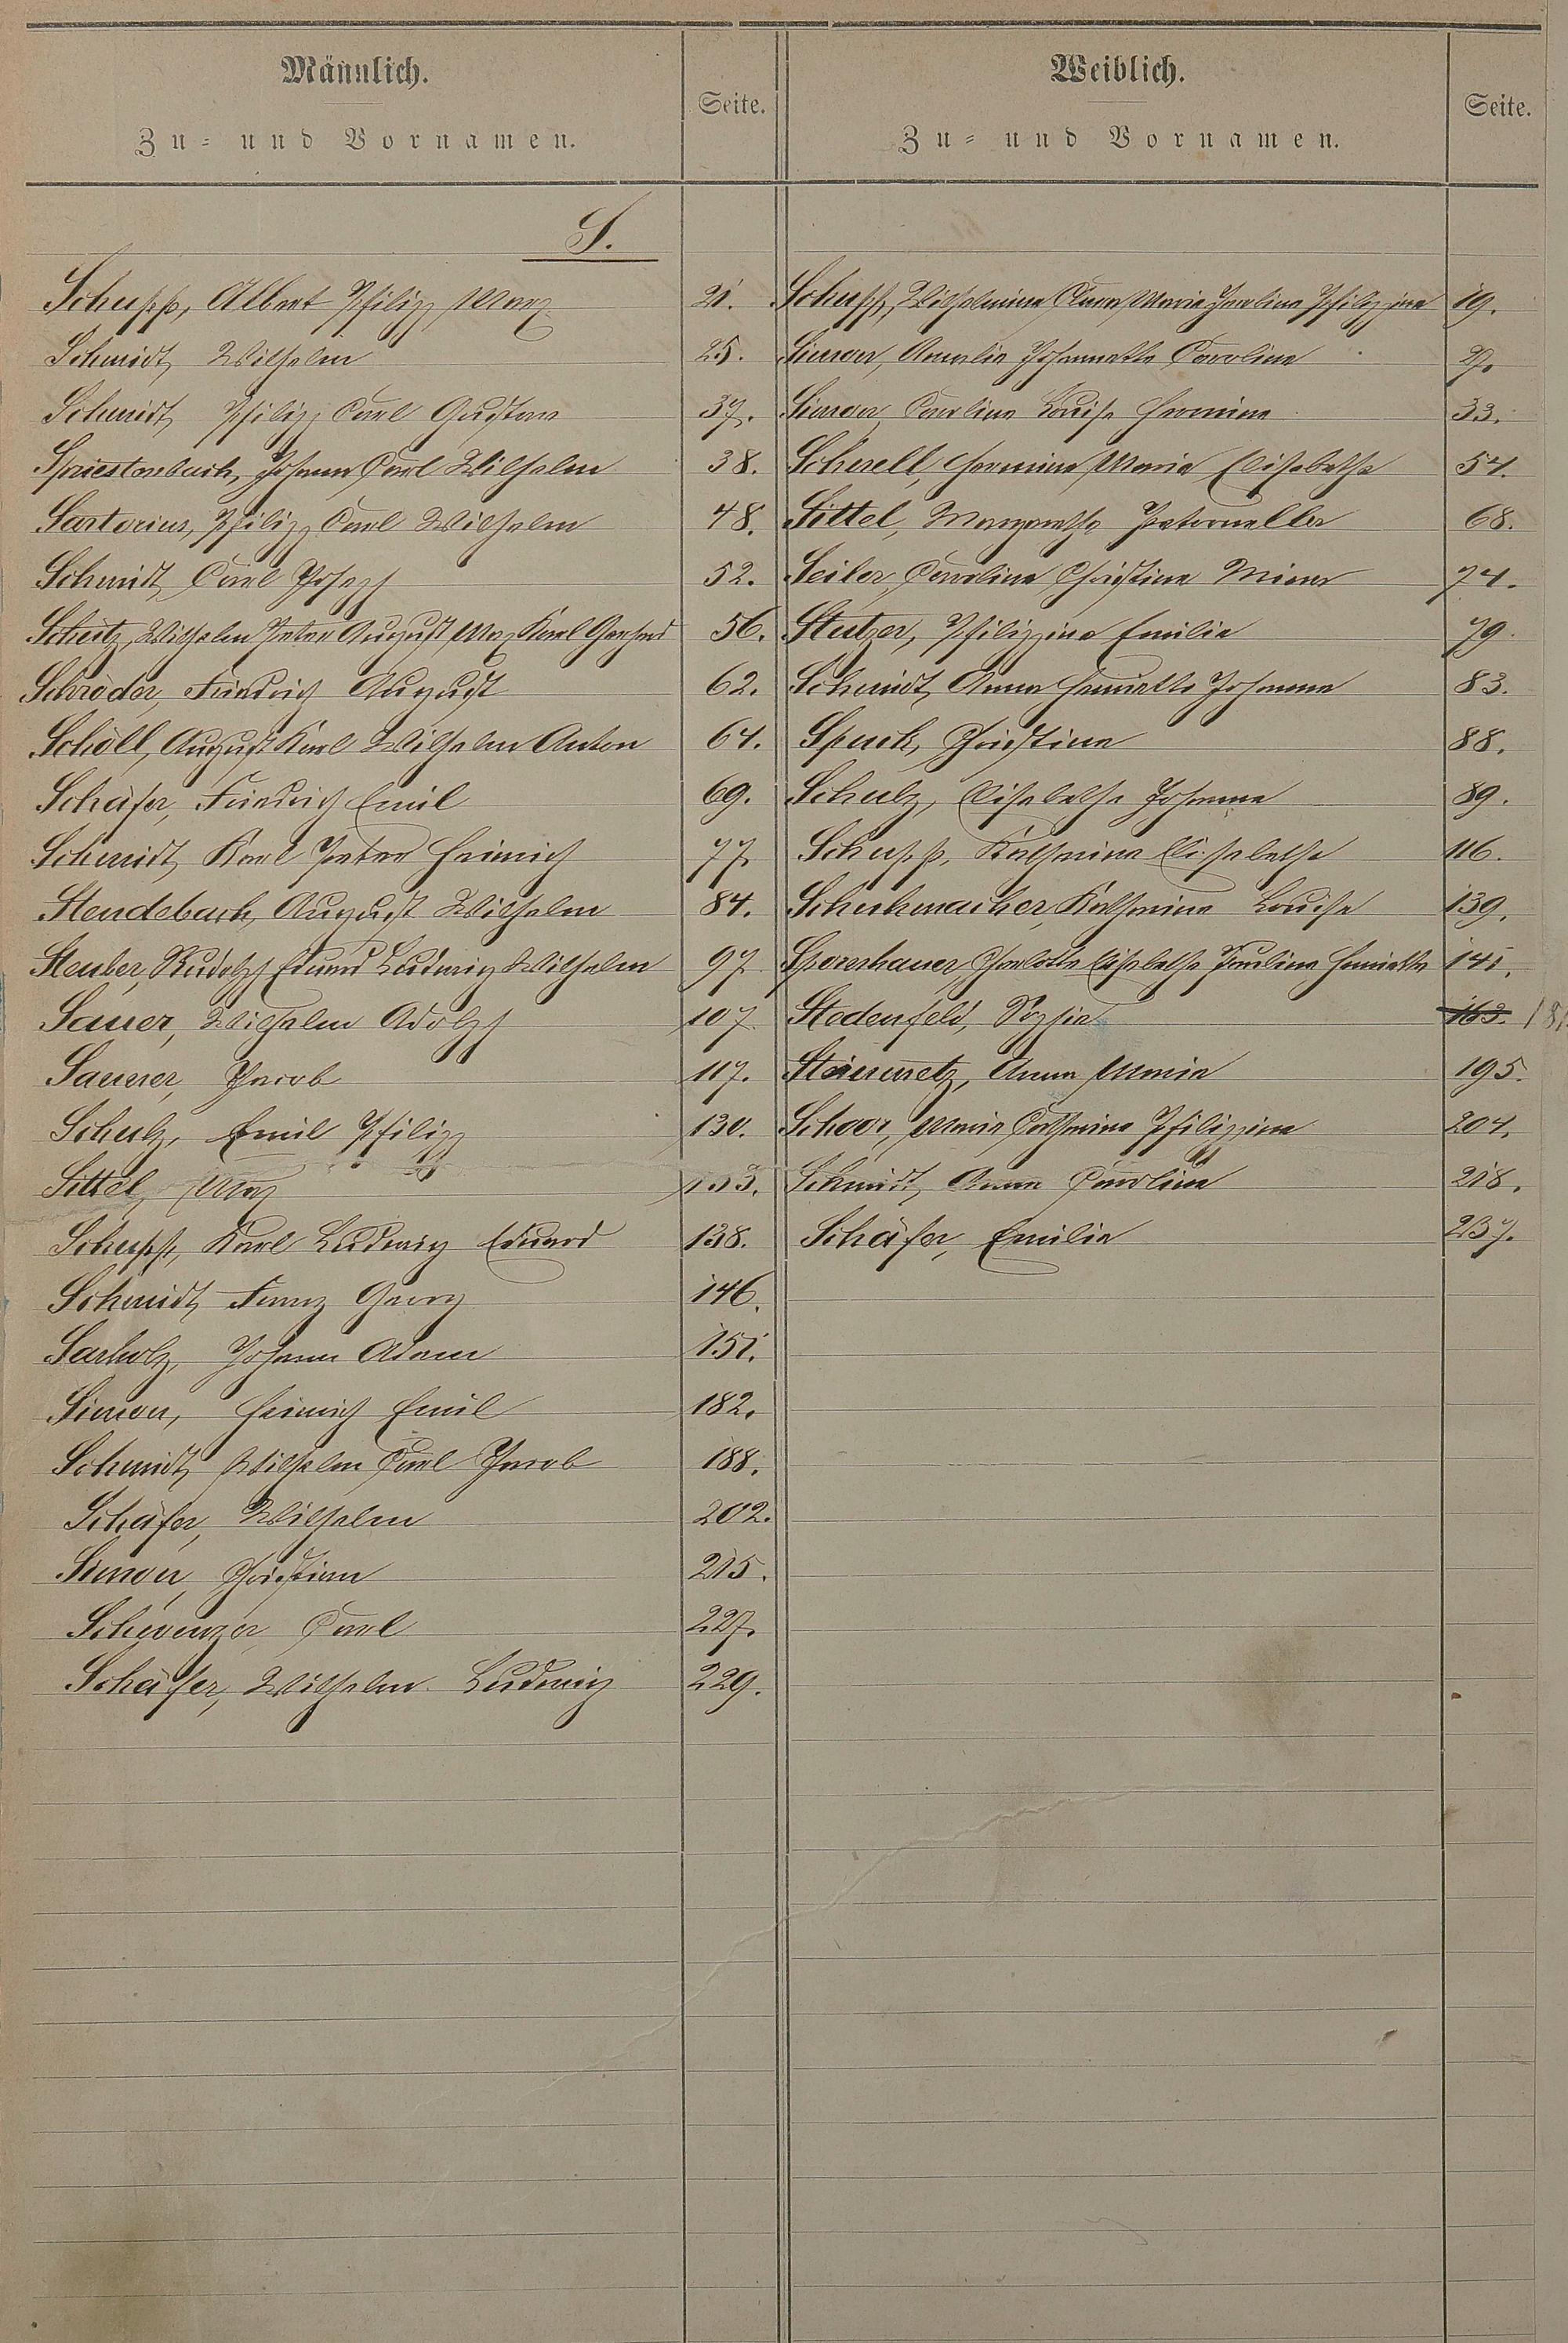 Männlich.
Zu- und Vornamen.
Seite.
Weiblich.
Zu- und Vornamen.
Seite.
S.
Schupp, Albert Philipp Max 21.
Schmidt, Wilhelm 25.
Schmidt, Philipp Carl Gustav 37.
Spriestersbach, Johann Carl Wilhelm 38.
Sartorius, Philipp Carl Wilhelm 48.
Schmidt, Carl Joseph 52.
Schütz, Wilhelm Peter August Max Karl Gerhard 56.
Schröder, Friedrich August 62.
Schöll, August Karl Wilhelm Anton 64.
Schäfer, Friedrich Emil 69.
Schmidt, Karl Peter Heinrich 77.
Stendebach, August Wilhelm 84.
Steuber, Rudolph Eduard Ludwig Wilhelm 97.
Sauer, Wilhelm Adolph 107.
Sauner, Jacob 117.
Schulz, Emil Philipp 130.
Sittel, Max 133.
Schupp, Karl Ludwig Eduard 138.
Schmidt, Franz Georg 146.
Sarholz, Johann Adam 151.
Simon, Heinrich Emil 182.
Schmidt, Wilhelm Carl Jacob 188.
Schäfer, Wilhelm 202.
Simon, Christian 215.
Schwenzer, Carl 227.
Schäfer, Wilhelm Ludwig 229.
Schupp, Wilhelmine Anna Maria Karoline Philippine 19.
Simon, Amalie Johannette Caroline 27.
Simon, Caroline Louise Hermine 33.
Scherell, Hermine Maria Elisabethe 54.
Sittel, Margarethe Petronella 68.
Seiler, Caroline Christine Minna 74.
Stutzer, Philippine Emilie 79.
Schmidt, Anna Henriette Johanna 83.
Spuck, Christine 88.
Schulz, Elisabethe Johanna 89.
Schupp, Katharina Elisabethe 116.
Schuhmacher, Katharina Louise 139.
Sporrhauer, Charlotte Elisabethe Pauline Henriette 141.
Stedenfeld, Sophie 163. 181.
Steinmetz, Anna Maria 195.
Schoor, Maria Catharina Philippine 204.
Schmidt, Anna Caroline 218.
Schäfer, Emilie 237.